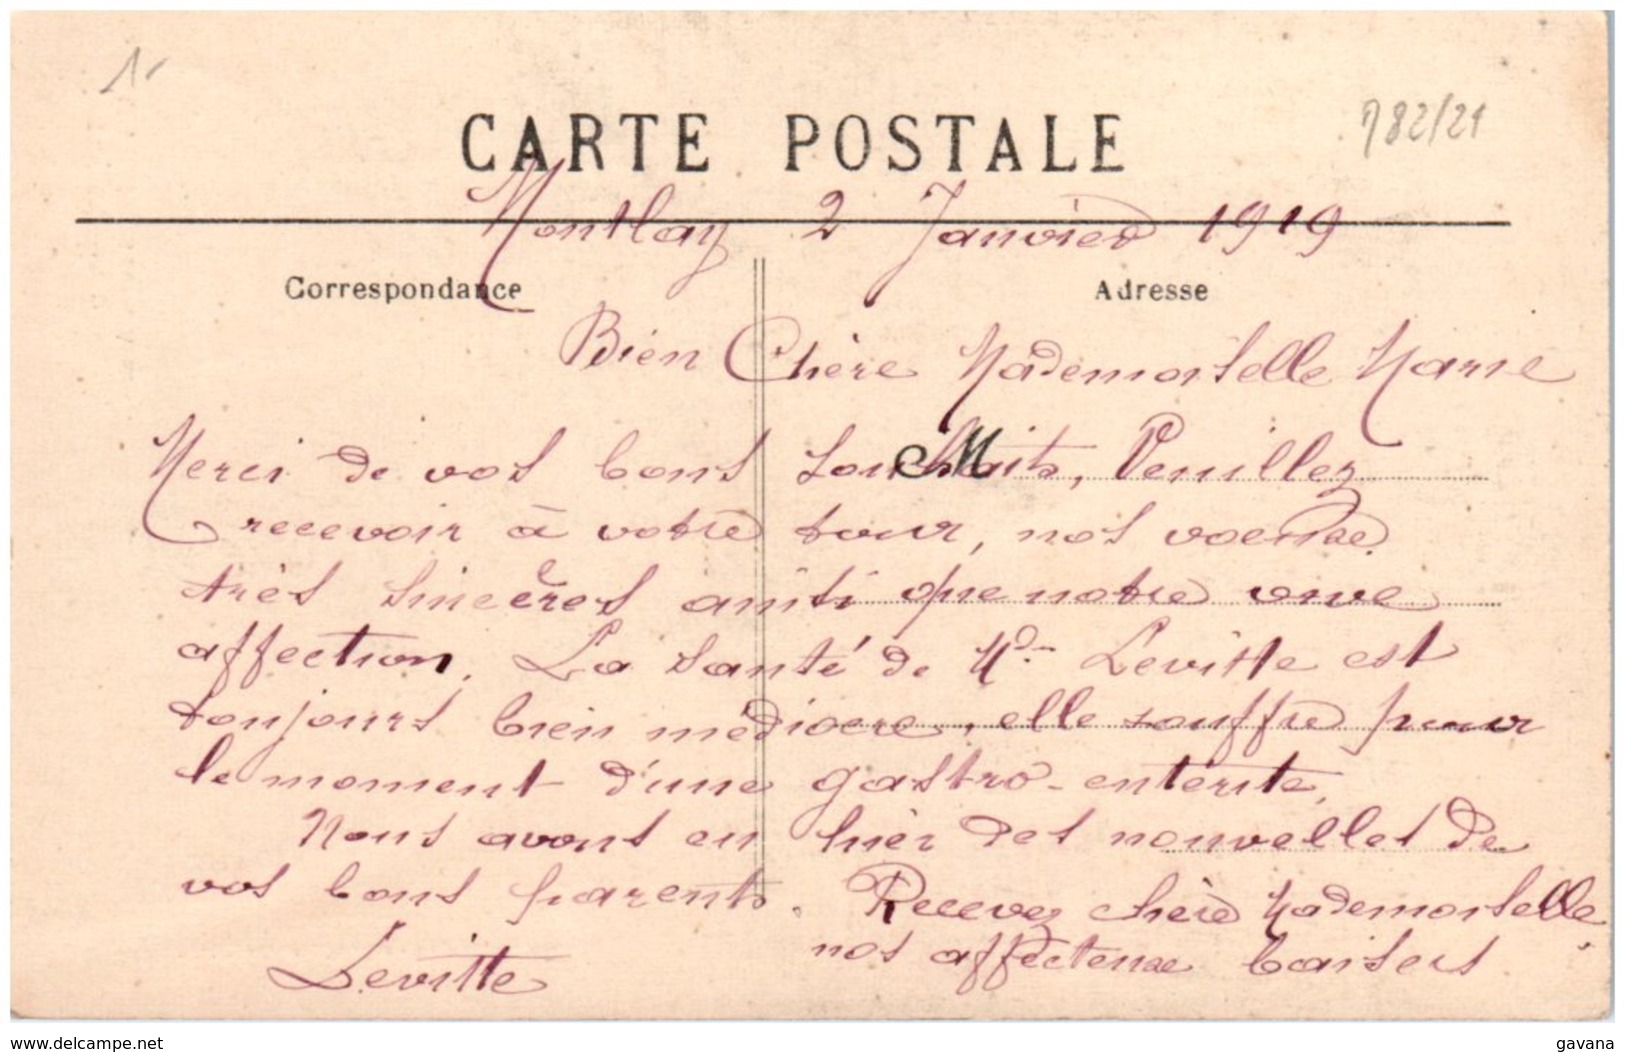 1-
782/21
CARTE POSTALE
Montlay 2 Janvier 1919
Correspondance
Adresse
Bien Chère Mademoiselle Marie
Merci de vos bons souhaits, Veuillez
M
recevoir à votre tour, nos voeux
très sincères ainsi que notre vive
affection. La santé de Me Levitte est
toujours bien médiocre, elle souffre pour
le moment d'une gastro-entérite,
Nous avons eu hier des nouvelles de
vos bons parents. Recevez chère Mademoiselle
nos affectueux baisers
Levitte
delcampe.net
gavana